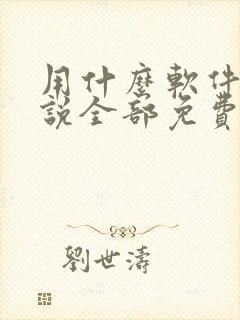 用什麼軟件
說全部免費
劉世濤